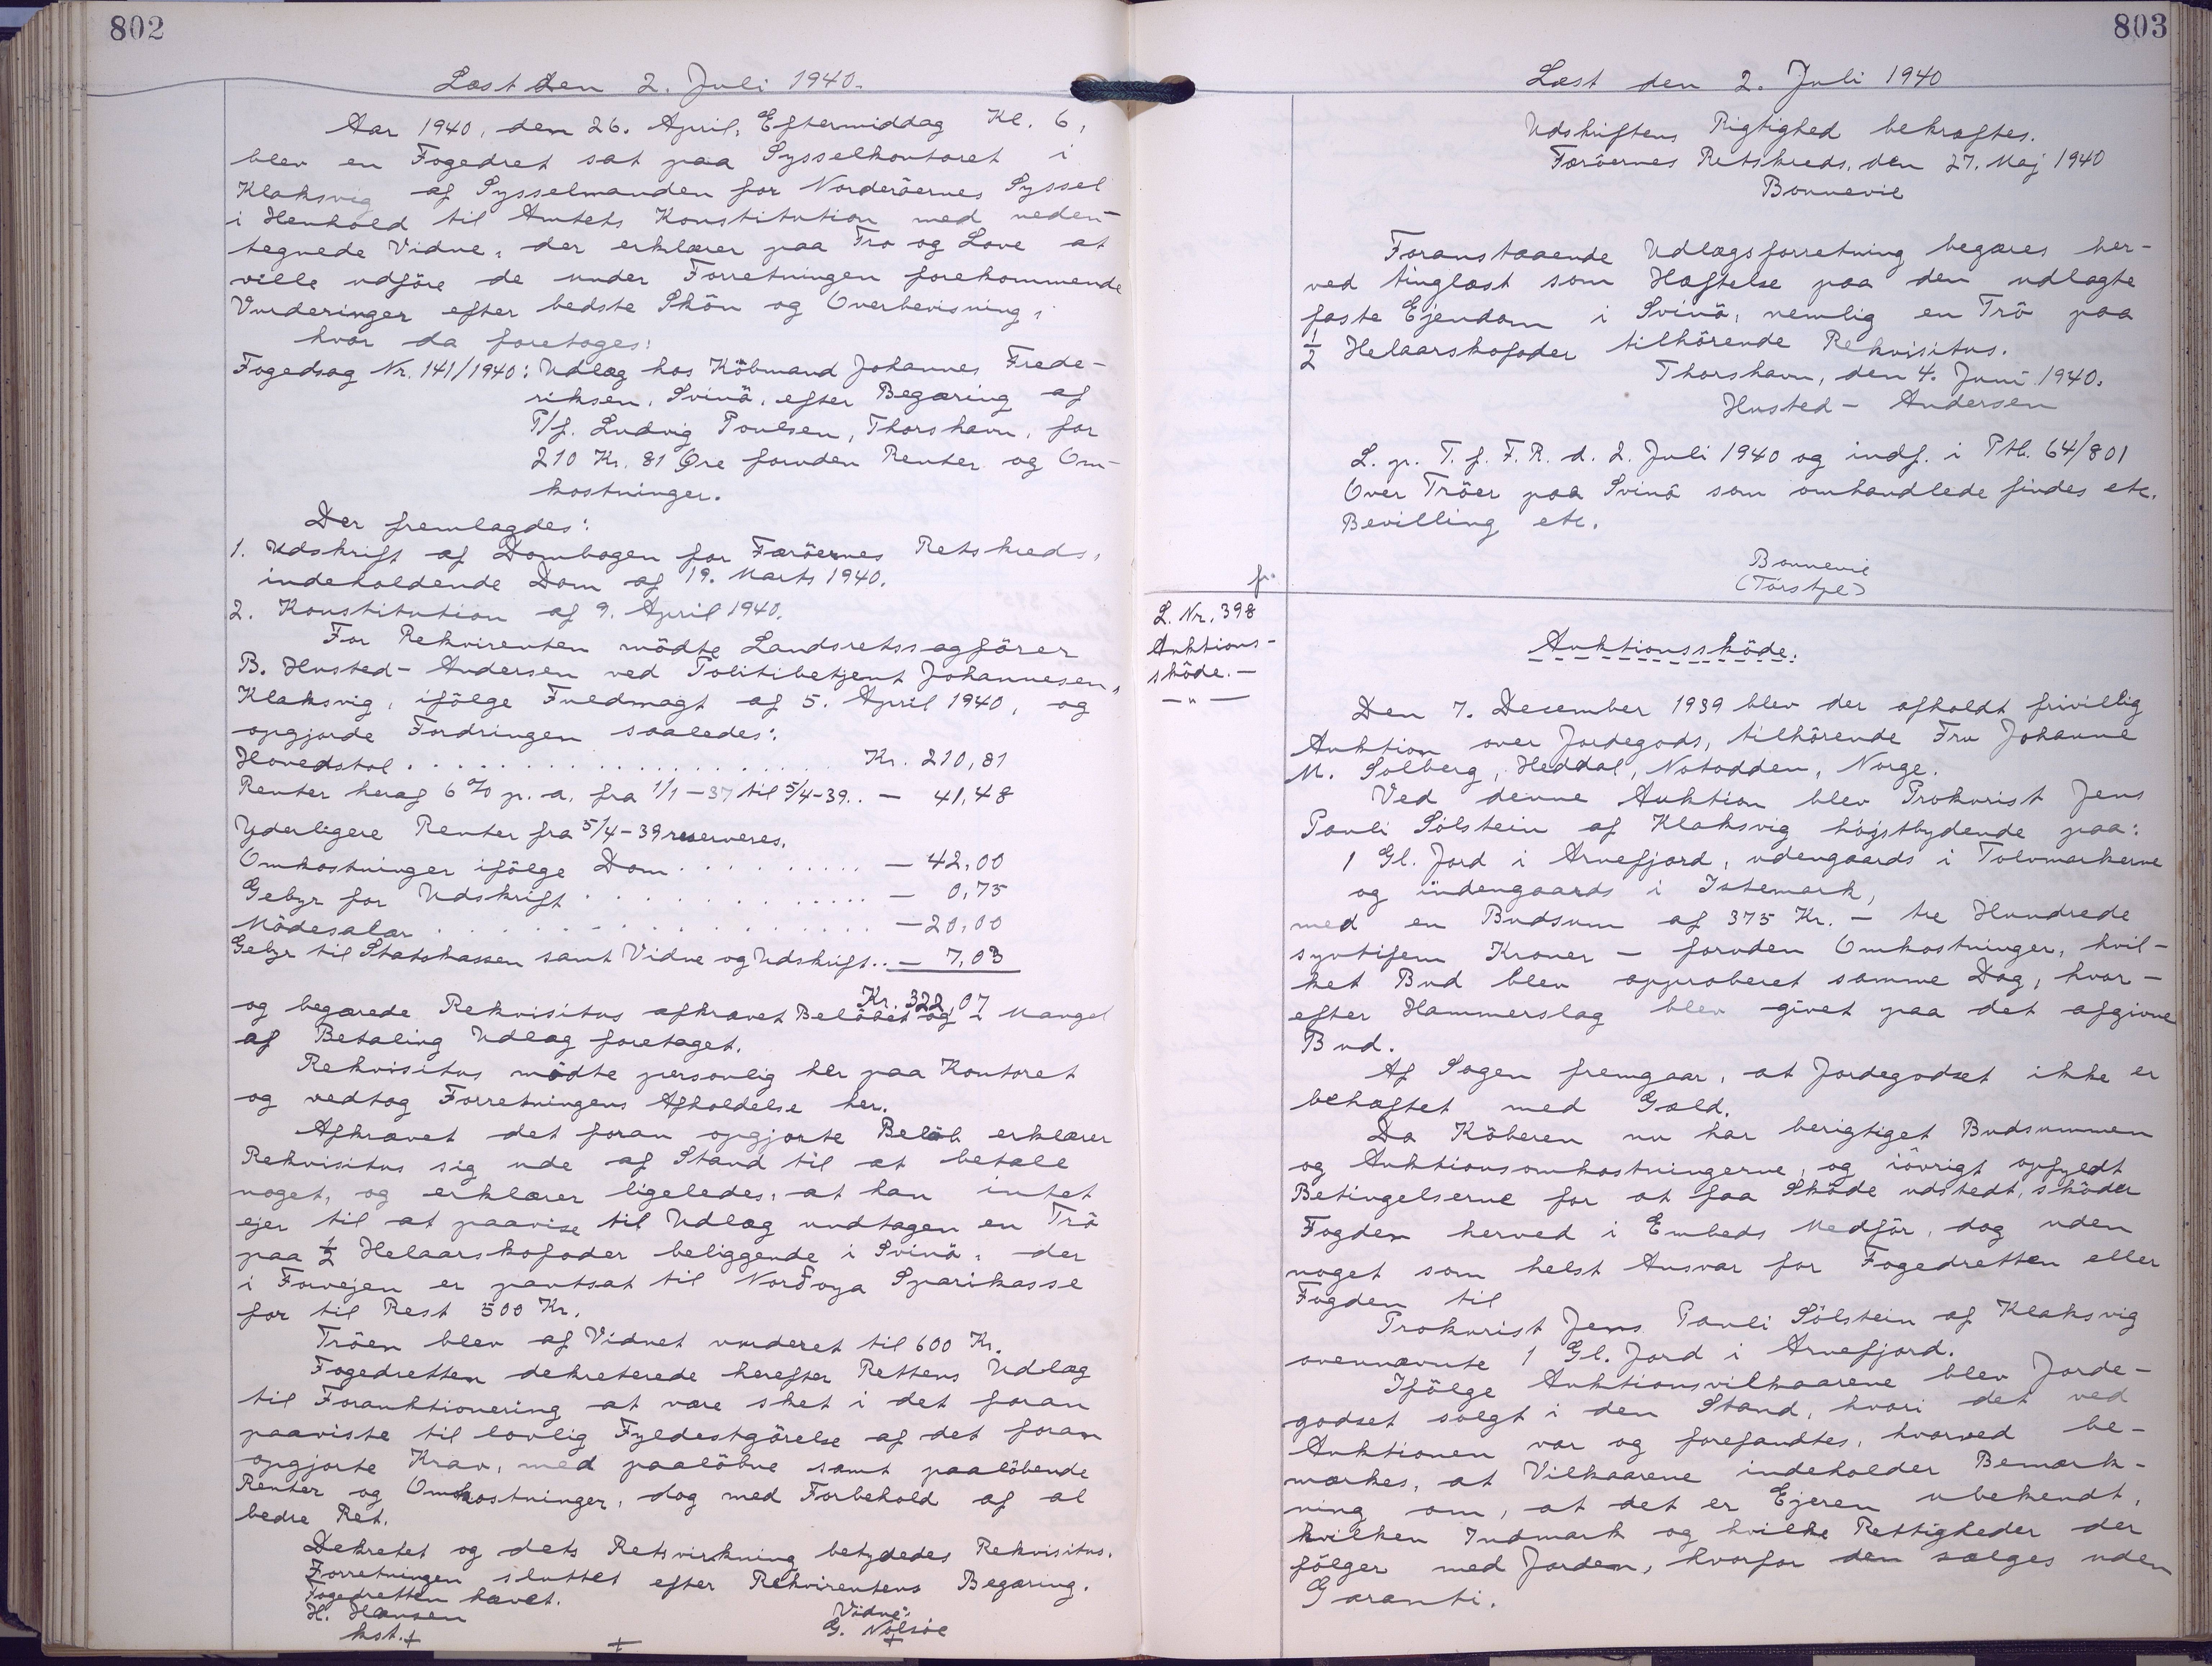 802
Læst den 2. Juli 1940.
Aar 1940, den 26. April, Eftermiddag Kl. 6,
blev en Fogedret sat paa Sysselkontoret i
Klaksvig af Sysselmanden for Norderöernes Syssel
i Henhold til Amtets Konstitution med neden-
tegnede Vidne, der erklærer paa Tro og Love at
ville udföre de under Forretningen forekommende
Vurderinger efter bedste Skön og Overbevisning,
hvor da foretoges:
Fogedsag Nr. 141/1940: Udlæg hos Köbmand Johannes Frede-
riksen, Svinö, efter Begæring af
P/f. Ludvig Poulsen, Thorshavn, for
210 Kr. 81 Øre foruden Renter og Om-
kostninger.
Der fremlagdes:
1. Udskrift af Dombogen for Færöernes Retskreds,
indeholdende Dom af 19. Marts 1940.
2. Konstitution af 9. April 1940.
For Rekvirenten mödte Landsretssagförer
B. Husted-Andersen ved Politibetjent Johannesen,
Klaksvig, ifölge Fuldmagt af 5. April 1940, og
opgjorde Fordringen saaledes:
Hovedstol . . . . . . . . . . . . . . . . . . Kr. 210,81
Renter heraf 6 % p. a. fra 1/1-37 til 5/4-39.. - 41,48
Yderligere Renter fra 5/4-39 reserveres.
Omkostninger ifölge Dom . . . . . . . . . - 42,00
Gebyr for Udskrift . . . . . . . . . . . . . - 0,75
Mödesalær . . . . . . . . . . . . . . . . . . - 20,00
Gebyr til Statskassen samt Vidne og Udskrift.. - 7,03
Kr. 322,07
og begærede Rekvisitus afkrævet Belöbet og i Mangel
af Betaling Udlæg foretaget.
Rekvisitus mödte personlig her paa Kontoret
og vedtog Forretningens Afholdelse her.
Afkrævet det foran opgjorte Belöb erklærer
Rekvisitus sig ude af Stand til at betale
noget, og erklærer ligeledes, at han intet
ejer til at paavise til Udlæg undtagen en Trö
paa 1/2 Helaarskofoder beliggende i Svinö, der
i Forvejen er pantsat til Norðoya Sparikasse
for til Rest 500 Kr.
Tröen blev af Vidnet vurderet til 600 Kr.
Fogedretten dekreterede herefter Rettens Udlæg
til Foranktionering at være sket i det foran
paaviste til lovlig Fyldestgörelse af det foran
opgjorte Krav, med paalöbne samt paalöbende
Renter og Omkostninger, dog med Forbehold af al
bedre Ret.
Dekretet og dets Retsvirkning betydedes Rekvisitus.
Forretningen sluttet efter Rekvirentens Begæring.
Fogedretten hævet.
H. Hansen
kst.
Vidne:
G. Nolsöe
803
Læst den 2. Juli 1940
Udskriftens Rigtighed bekræftes.
Færöernes Retskreds, den 27. Maj 1940
Bonnevie
Foranstaaende Udlægsforretning begæres her-
ved tinglæst som Hæftelse paa den udlagte
faste Ejendom i Svinö, nemlig en Trö paa
1/2 Helaarskofoder tilhörende Rekvisitus.
Thorshavn, den 4. Juni 1940.
Husted-Andersen
L. p. T. f. F. R. d. 2. Juli 1940 og indf. i Ptb. 64/801
Over Tröer paa Svinö som omhandlede findes etc.
Bevilling etc.
Bonnevie
L. Nr. 398
Auktions-
sköde.-
-"-
Auktionssköde.
Den 7. December 1939 blev der afholdt frivillig
Auktion over Jordegods, tilhörende Fru Johanne
M. Solberg, Heddal, Notodden, Norge.
Ved denne Auktion blev Prokurist Jens
Pauli Sólstein af Klaksvig höjstbydende paa:
1 Gl. Jord i Arnefjord, udengaards i Tolvmarkerne
og indengaards i Istemark,
med en Budsum af 375 Kr. - tre Hundrede
syvtifem Kroner - foruden Omkostninger, hvil-
ket Bud blev approberet samme Dag, hvor-
efter Hammerslag blev givet paa det afgivne
Bud.
Af Sagen fremgaar, at Jordegodset ikke er
behæftet med Gæld.
Da Köberen nu har berigtiget Budsummen
og Auktionsomkostningerne, og iövrigt opfyldt
Betingelserne for at faa Sköde udstedt, sköder
Fogden herved i Embeds Medför, dog uden
noget som helst Ansvar for Fogedretten eller
Fogden til
Prokurist Jens Pauli Sólstein af Klaksvig
ovennævnte 1 Gl. Jord i Arnefjord.
Ifölge Auktionsvilkaarene blev Jorde-
godset solgt i den Stand, hvori det ved
Auktionen var og forefandtes, hvorved be-
mærkes, at Vilkaarene indeholder Bemærk-
ning om, at det er Ejeren ubekendt,
hvilken Indmark og hvilke Rettigheder der
fölger med Jorden, hvorfor den sælges uden
Garanti.